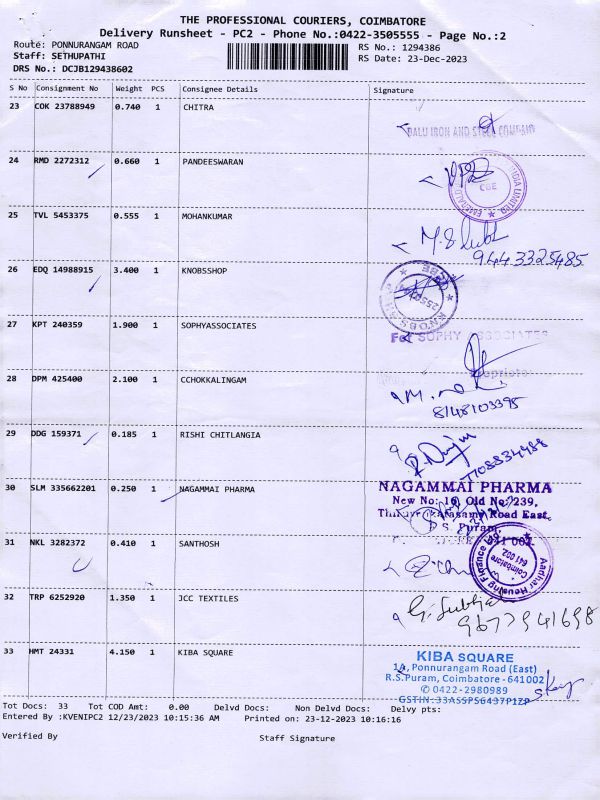 THE PROFESSIONAL COURIERS, COIMBATORE
Delivery Runsheet - PC2 - Phone No.:0422-3505555 - Page No.:2
Route: PONNURANGAM ROAD
RS No.: 1294386
Staff: SETHUPATHI
RS Date: 23-Dec-2023
DRS No.: DCJB129438602
S No Consignment No Weight PCS Consignee Details Signature
23 COK 23788949 0.740 1 CHITRA
BALU IRON AND STEEL COMPANY
24 RMD 2272312 0.660 1 PANDEESWARAN
CBE
25 TVL 5453375 0.555 1 MOHANKUMAR
9443325485
26 EDQ 14988915 3.400 1 KNOBSSHOP
27 KPT 240359 1.900 1 SOPHYASSOCIATES
For SOPHY ASSOCIATES
28 DPM 425400 2.100 1 CCHOKKALINGAM
8148103395
29 DDG 159371 0.185 1 RISHI CHITLANGIA
7708834488
30 SLM 335662201 0.250 1 NAGAMMAI PHARMA
NAGAMMAI PHARMA
New No: 16, Old No: 239,
Road East,
R.S. Puram,
31 NKL 3282372 0.410 1 SANTHOSH
Aadhar Housing Finance
Coimbatore
641 002
32 TRP 6252920 1.350 1 JCC TEXTILES
9677941698
33 HMT 24331 4.150 1 KIBA SQUARE
KIBA SQUARE
14, Ponnurangam Road (East)
R.S.Puram, Coimbatore - 641002
✆ 0422-2980989
GSTIN:33ASSPS6437P1ZP
Tot Docs: 33 Tot COD Amt: 0.00 Delvd Docs: Non Delvd Docs: Delvy pts:
Entered By :KVENIPC2 12/23/2023 10:15:36 AM Printed on: 23-12-2023 10:16:16
Verified By Staff Signature